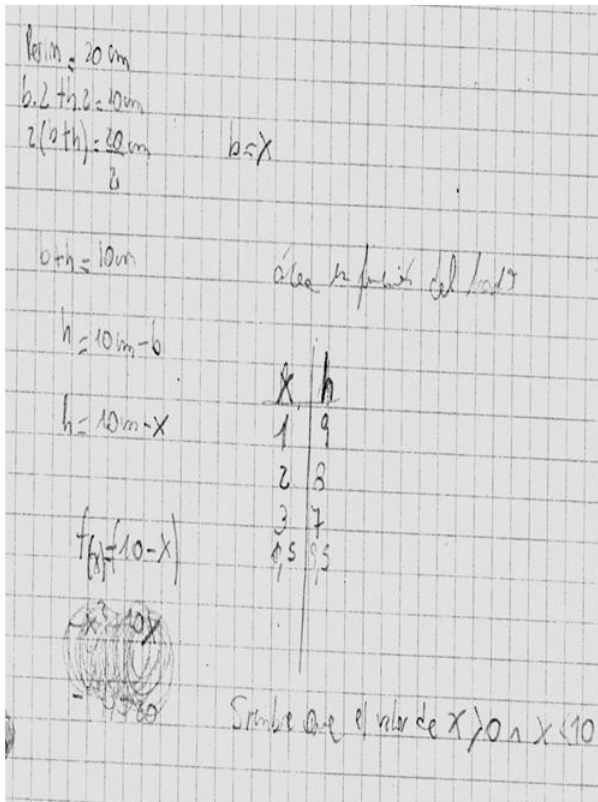 Perim = 20 cm
b.2 + h.2 = 20cm
2(b+h) = 20 cm
2
b=x
b+h = 10cm
área en función del
h = 10 cm - b
h = 10cm - x
x | h
1 | 9
2 | 8
3 | 7
0,5 | 9,5
f(x) = (10-x)
-x² + 10x
Siembre que el valor de x > 0 ∧ x < 10